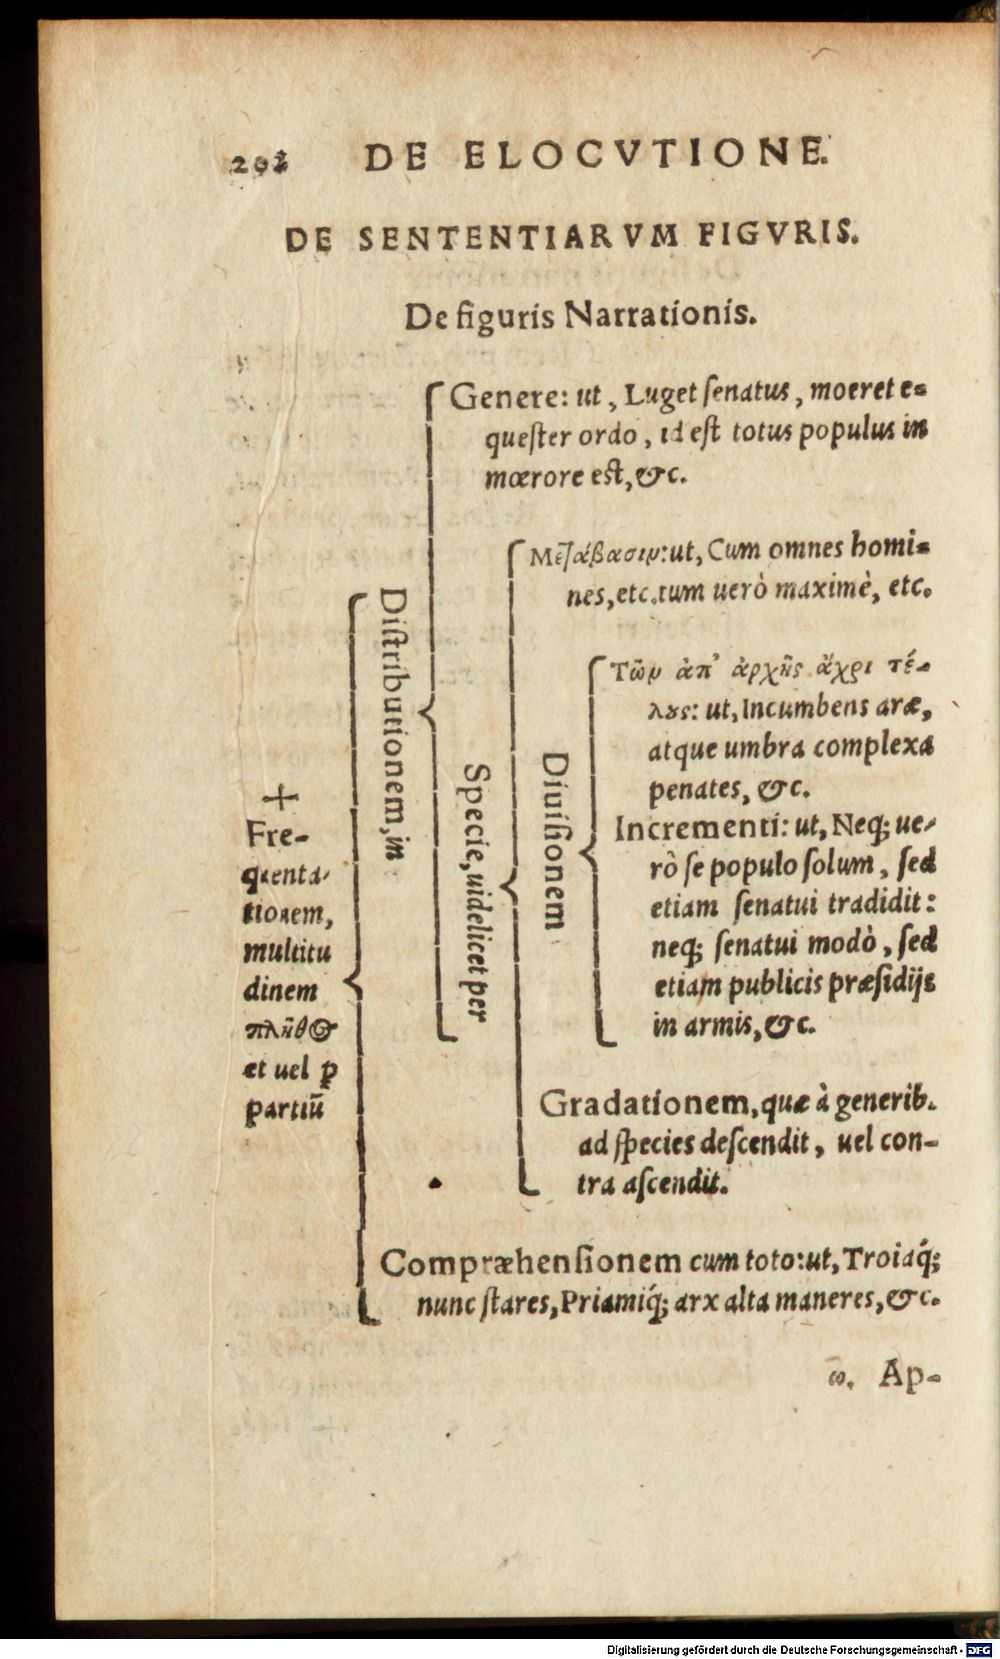 202 DE ELOCVTIONE.
DE SENTENTIARVM FIGVRIS.
De figuris Narrationis.
✢
Fre-
quenta-
tionem,
multitu
dinem
πλῆθ⊙
et uel ꝑ
partiũ
Distributionem, in
Genere: ut, Luget senatus, moeret e-
quester ordo, id est totus populus in
mœrore est, &c.
Specie, uidelicet per
Μετάβασιν: ut, Cum omnes homi-
nes, etc. tum uerò maximè, etc.
Diuisionem
Τῶν ἀπ' ἀρχῆς ἄχρι τέ-
λȣς: ut, Incumbens aræ,
atque umbra complexa
penates, &c.
Incrementi: ut, Neq; ue-
rò se populo solum, sed
etiam senatui tradidit:
neq; senatui modò, sed
etiam publicis præsidijs
in armis, &c.
Gradationem, quæ à generib.
ad species descendit, uel con-
tra ascendit.
Compræhensionem cum toto: ut, Troiaq́;
nunc stares, Priamiq́; arx alta maneres, &c.
Ap-
Digitalisierung gefördert durch die Deutsche Forschungsgemeinschaft - DFG